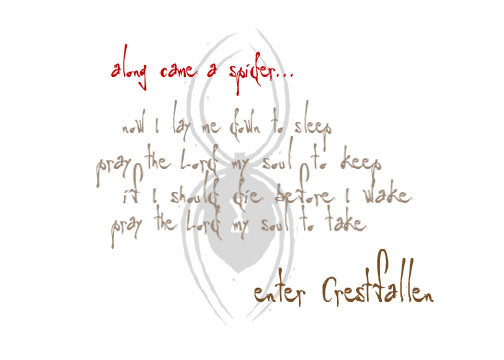 along came a spider...
now I lay me down to sleep
pray the Lord my soul to keep
if I should die before I wake
pray the Lord my soul to take
enter Crestfallen